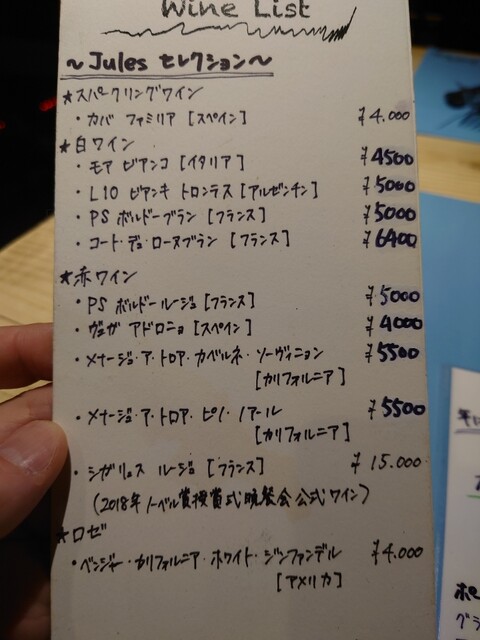 Wine List
～Jules セレクション～
★スパークリングワイン
・カバ ファミリア [スペイン] ¥4.000
★白ワイン
・モア ビアンコ [イタリア] ¥4500
・L10 ビアンキ トロンテス [アルゼンチン] ¥5000
・PS ボルドーブラン [フランス] ¥5000
・コート・デュ・ローヌブラン [フランス] ¥6400
★赤ワイン
・PS ボルドールージュ [フランス] ¥5000
・ヴェガ アドロニョ [スペイン] ¥4000
・メナージュ・ア・トロア・カベルネ・ソーヴィニョン ¥5500
[カリフォルニア]
・メナージュ・ア・トロア・ピノ・ノアール ¥5500
[カリフォルニア]
・シガリュス ルージュ [フランス] ¥15.000
(2018年ノーベル賞授賞式晩餐会公式ワイン)
★ロゼ
・ベンジャー・カリフォルニア・ホワイト・ジンファンデル ¥4.000
[アメリカ]